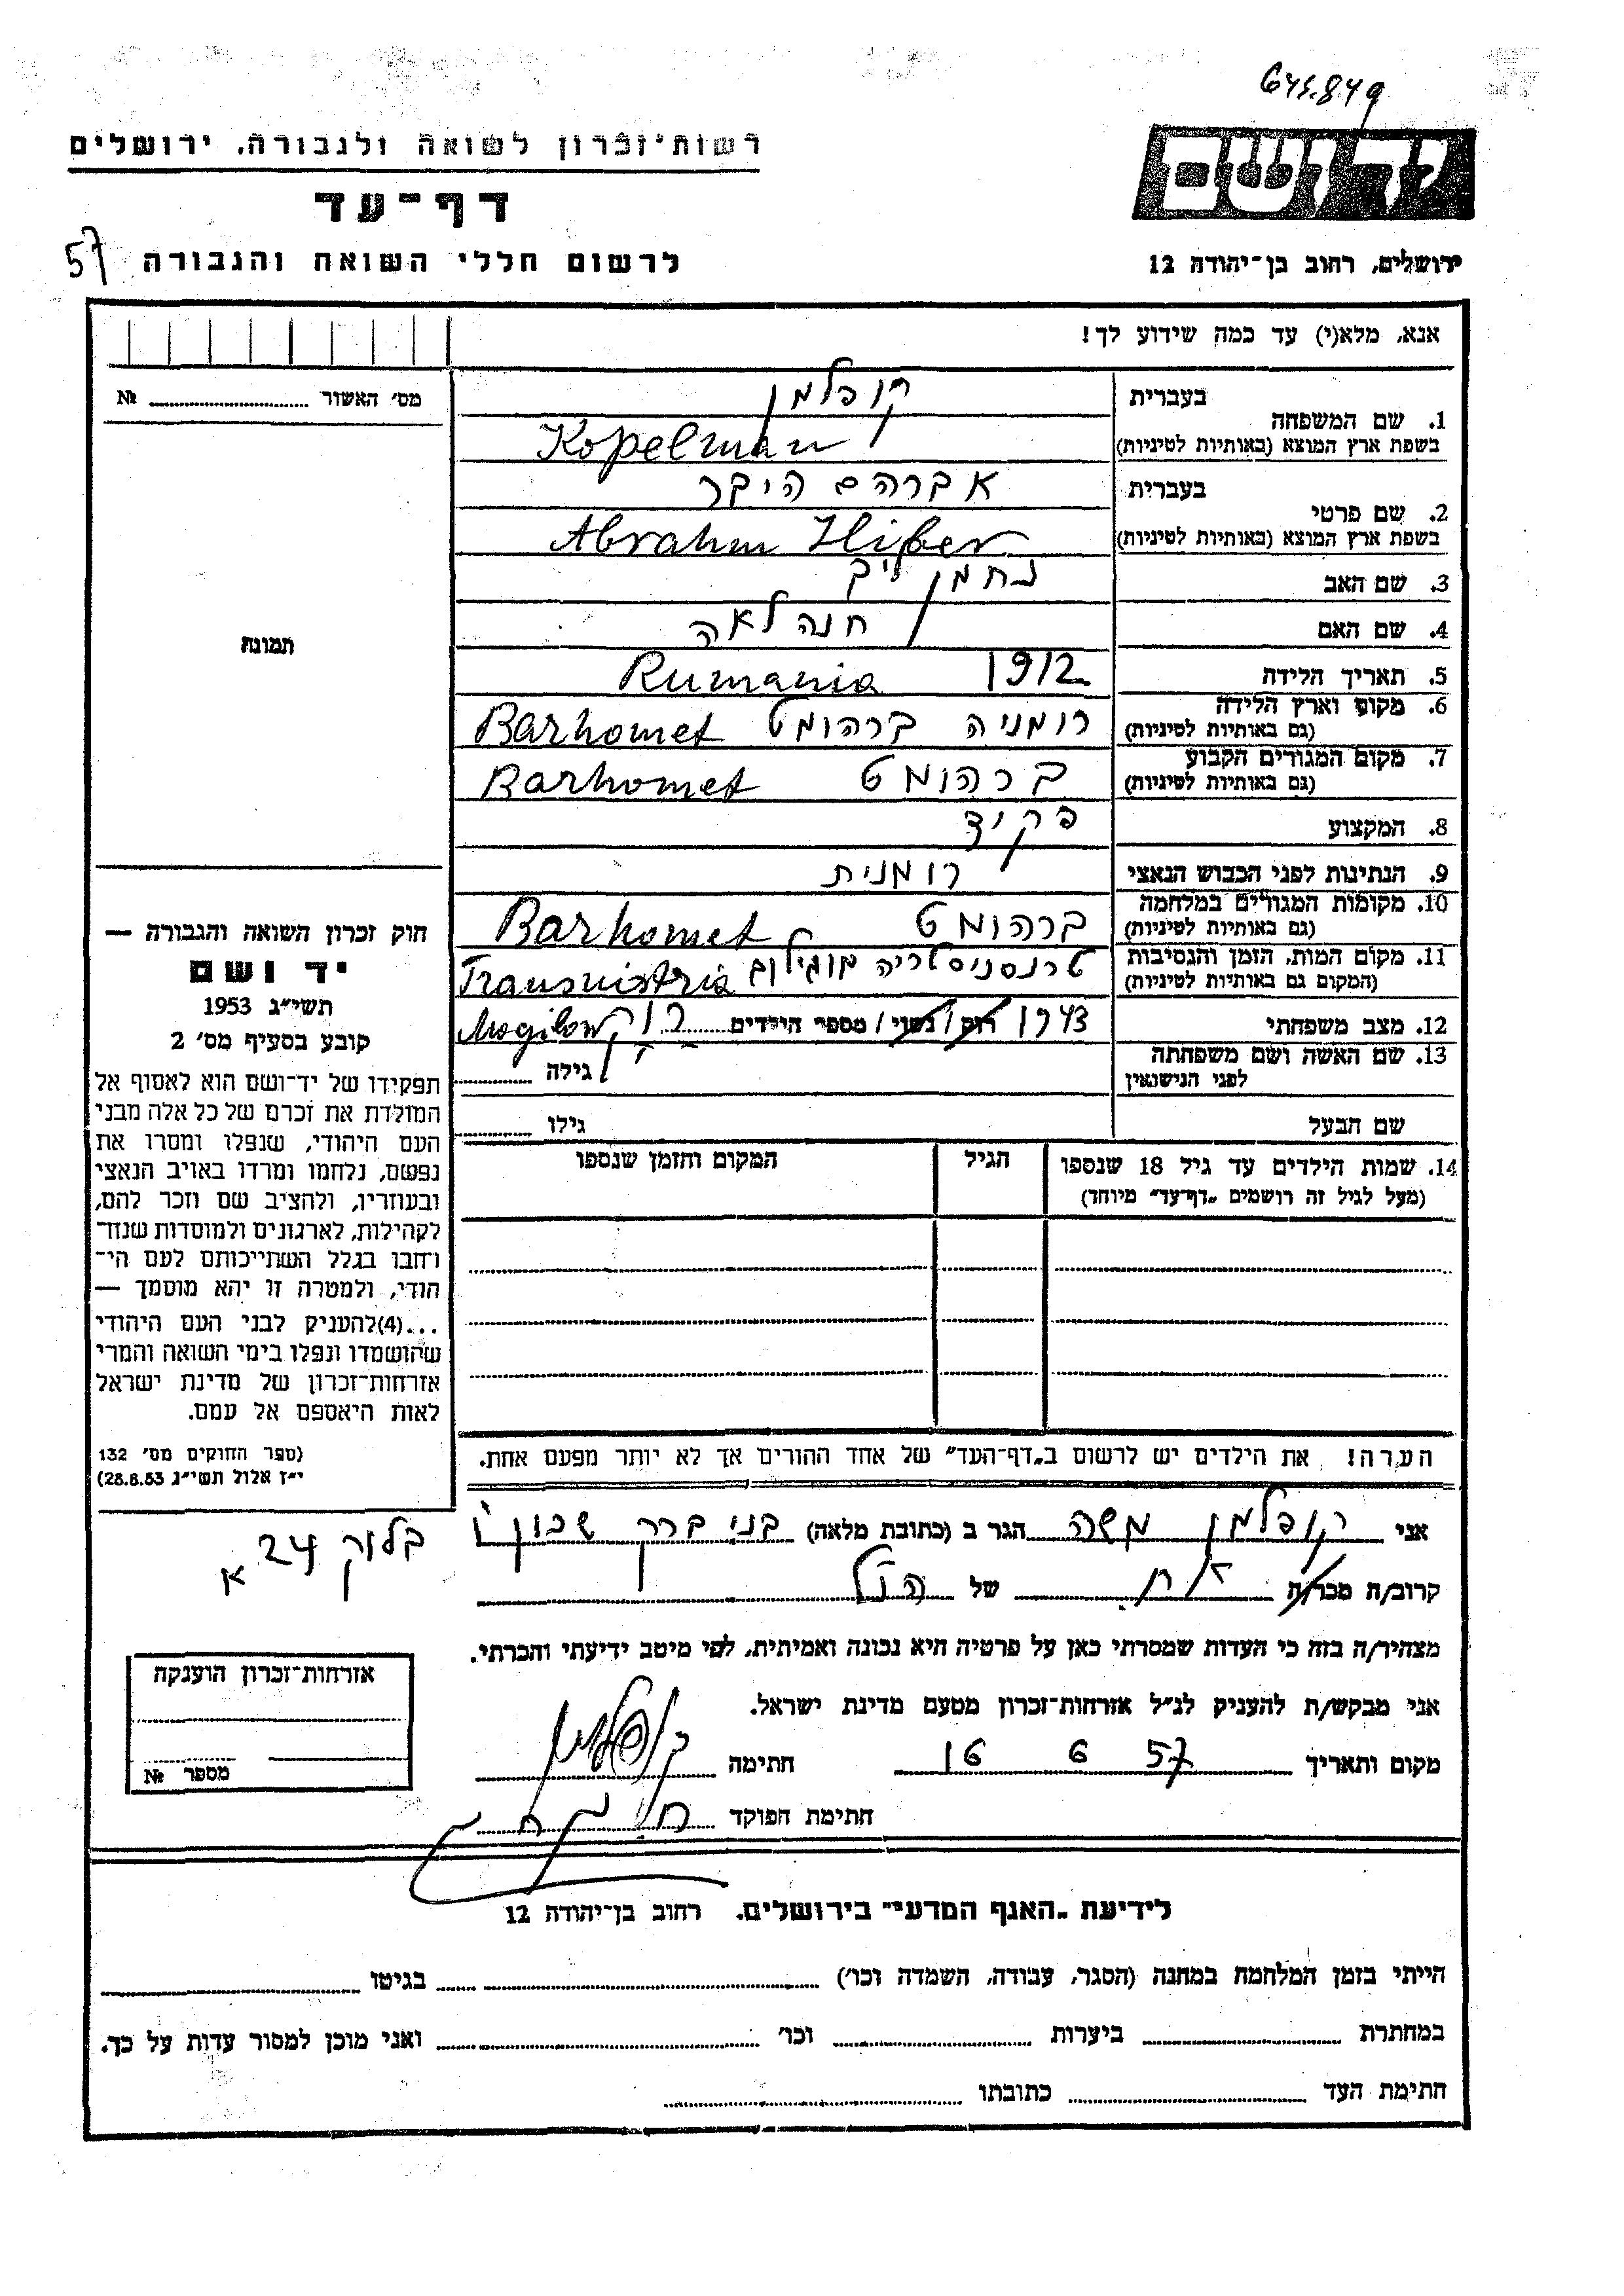 645.849
רשות־זכרון לשואה ולגבורה. ירושלים
דף־עד
57
לרשום חללי השואה והגבורה
יד ושם
ירושלים, רחוב בן־יהודה 12
אנא, מלא(י) עד כמה שידוע לך!
מס׳ האשור № 
תמונה
1. שם המשפחה
בעברית
קופלמן
בשפת ארץ המוצא (באותיות לטיניות)
Kopelman
2. שם פרטי
בעברית
אברהם היבר
בשפת ארץ המוצא (באותיות לטיניות)
Abrahm Hiber
3. שם האב
נחמן ליב
4. שם האם
חנה לאה
5. תאריך הלידה
1912 Rumania
6. מקום וארץ הלידה
(גם באותיות לטיניות)
רומניה ברהומט Barhomet
7. מקום המגורים הקבוע
(גם באותיות לטיניות)
ברהומט Barhomet
8. המקצוע
פקיד
9. הנתינות לפני הכבוש הנאצי
רומנית
10. מקומות המגורים במלחמה
(גם באותיות לטיניות)
ברהומט Barhomet
11. מקום המות, הזמן והנסיבות
(המקום גם באותיות לטיניות)
טרנסניסטריה מוגילוב Transnistria
12. מצב משפחתי
1943 רוק / נשוי / מספר הילדים רוק Mogilow
13. שם האשה ושם משפחתה
לפני הנישואין
גילה
שם הבעל
גילו
14. שמות הילדים עד גיל 18 שנספו
(מעל לגיל זה רושמים „דף־עד" מיוחד)
הגיל
המקום והזמן שנספו
הערה! את הילדים יש לרשום ב„דף־העד" של אחד ההורים אך לא יותר מפעם אחת.
חוק זכרון השואה והגבורה —
יד ושם
תשי״ג 1953
קובע בסעיף מס׳ 2
תפקידו של יד־ושם הוא לאסוף אל
המולדת את זכרם של כל אלה מבני
העם היהודי, שנפלו ומסרו את
נפשם, נלחמו ומרדו באויב הנאצי
ובעוזריו, ולהציב שם וזכר להם,
לקהילות, לארגונים ולמוסדות שנח־
רחבו בגלל השתייכותם לעם הי־
הודי, ולמטרה זו יהא מוסמך —
...(4)להעניק לבני העם היהודי
שהושמדו ונפלו בימי השואה והמרי
אזרחות־זכרון של מדינת ישראל
לאות היאספם אל עמם.
(ספר החוקים מס׳ 132
י״ז אלול תשי״ג 28.8.53)
אני קופלמן משה הגר ב (כתובת מלאה) בני ברק שכון ו׳
בלוק 24 א
קרוב/ה מכר/ה אח של הנ״ל
מצהיר/ה בזה כי העדות שמסרתי כאן על פרטיה היא נכונה ואמיתית, לפי מיטב ידיעתי והכרתי.
אני מבקש/ת להעניק לנ״ל אזרחות־זכרון מטעם מדינת ישראל.
מקום ותאריך 16 6 57 חתימה קופלמן
חתימת הפוקד
אזרחות־זכרון הוענקה
מספר №
לידיעת „האגף המדעי" בירושלים. רחוב בן־יהודה 12
הייתי בזמן המלחמה במחנה (הסגר, עבודה, השמדה וכו׳) בגיטו
במחתרת ביערות וכו׳ ואני מוכן למסור עדות על כך.
חתימת העד כתובתו